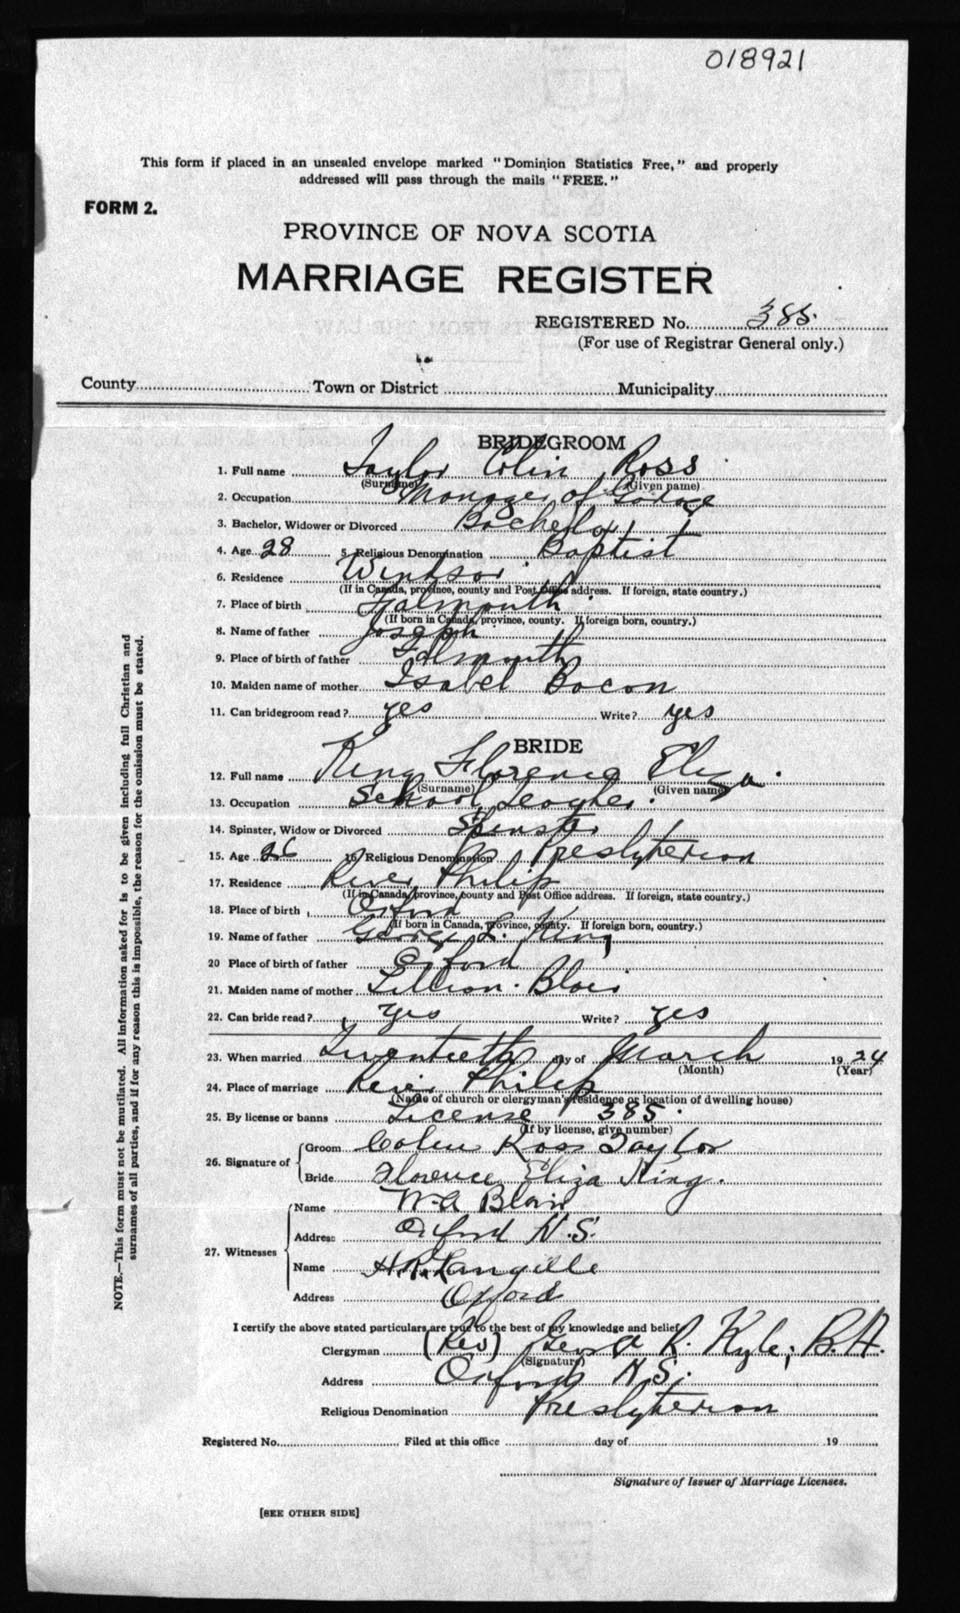 018921
This form if placed in an unsealed envelope marked "Dominion Statistics Free," and properly
addressed will pass through the mails "FREE."
FORM 2.
PROVINCE OF NOVA SCOTIA
MARRIAGE REGISTER
REGISTERED No. 385.
(For use of Registrar General only.)
County Town or District Municipality
BRIDEGROOM
1. Full name Taylor Colin Ross
(Surname) (Given name)
2. Occupation Manager of Garage
3. Bachelor, Widower or Divorced Bachelor
4. Age 28 5. Religious Denomination Baptist
6. Residence Windsor
(If in Canada, province, county and Post Office address. If foreign, state country.)
7. Place of birth Falmouth
(If born in Canada, province, county. If foreign born, country.)
8. Name of father Joseph
9. Place of birth of father Falmouth
10. Maiden name of mother Isabel Bacon
11. Can bridegroom read? yes Write? yes
BRIDE
12. Full name King Florence Eliza.
(Surname) (Given name)
13. Occupation School Teacher.
14. Spinster, Widow or Divorced Spinster
15. Age 26 16. Religious Denomination Presbyterian
17. Residence River Philip
(If in Canada, province, county and Post Office address. If foreign, state country.)
18. Place of birth Oxford
(If born in Canada, province, county. If foreign born, country.)
19. Name of father George L. King
20 Place of birth of father Oxford
21. Maiden name of mother Lillian Blair
22. Can bride read? yes Write? yes
23. When married Twentieth day of March 1924
(Month) (Year)
24. Place of marriage River Philip
(Name of church or clergyman's residence or location of dwelling house)
25. By license or banns License 385.
(If by license, give number)
26. Signature of Groom Colin Ross Taylor
Bride Florence Eliza King.
27. Witnesses Name W-A Blair
Address Oxford N.S.
Name H.R. Langille
Address Oxford
I certify the above stated particulars are true to the best of my knowledge and belief.
Clergyman (Rev) R. Kyle, B.A.
(Signature)
Address Oxford N.S.
Religious Denomination Presbyterian
Registered No. Filed at this office day of 19
Signature of Issuer of Marriage Licenses.
[SEE OTHER SIDE]
NOTE.—This form must not be mutilated. All information asked for is to be given including full Christian and
surnames of all parties, and if for any reason this is impossible, the reason for the omission must be stated.